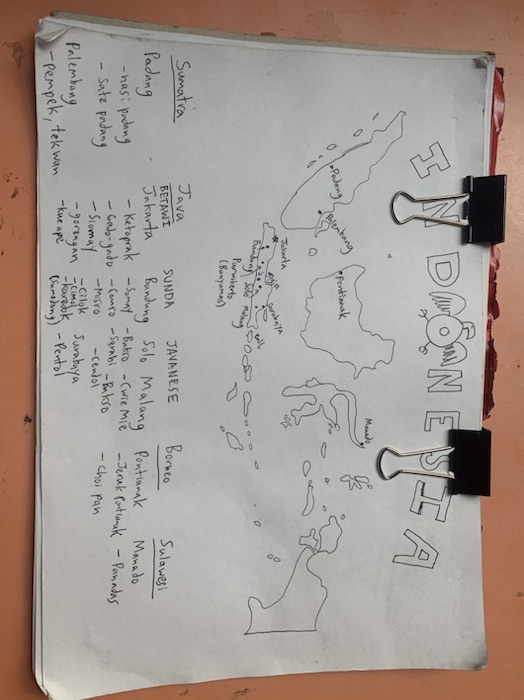 INDONESIA
Manado
Pontianak
Padang
Palembang
Jakarta
Bandung
Solo
Surabaya
Malang
Purwokerto
(Banyumas)
Sumatra
Padang
- nasi padang
- sate padang
Palembang
- pempek, tekwan
Java
BETAWI
Jakarta
- Ketoprak
- Gado-gado
- Siomay
- gorengan
- kue ape
SUNDA
Bandung
- Somay
- comro
- misro
- cilok
- cimol
- karedok
JAVANESE
Solo
- Bakso
- Serabi
- Cendol
Malang
- Cwie Mie
- Bakso
Surabaya
- Pentol
Borneo
Pontianak
- Jeruk Pontianak
- Choi pan
Sulawesi
Manado
- Panadas